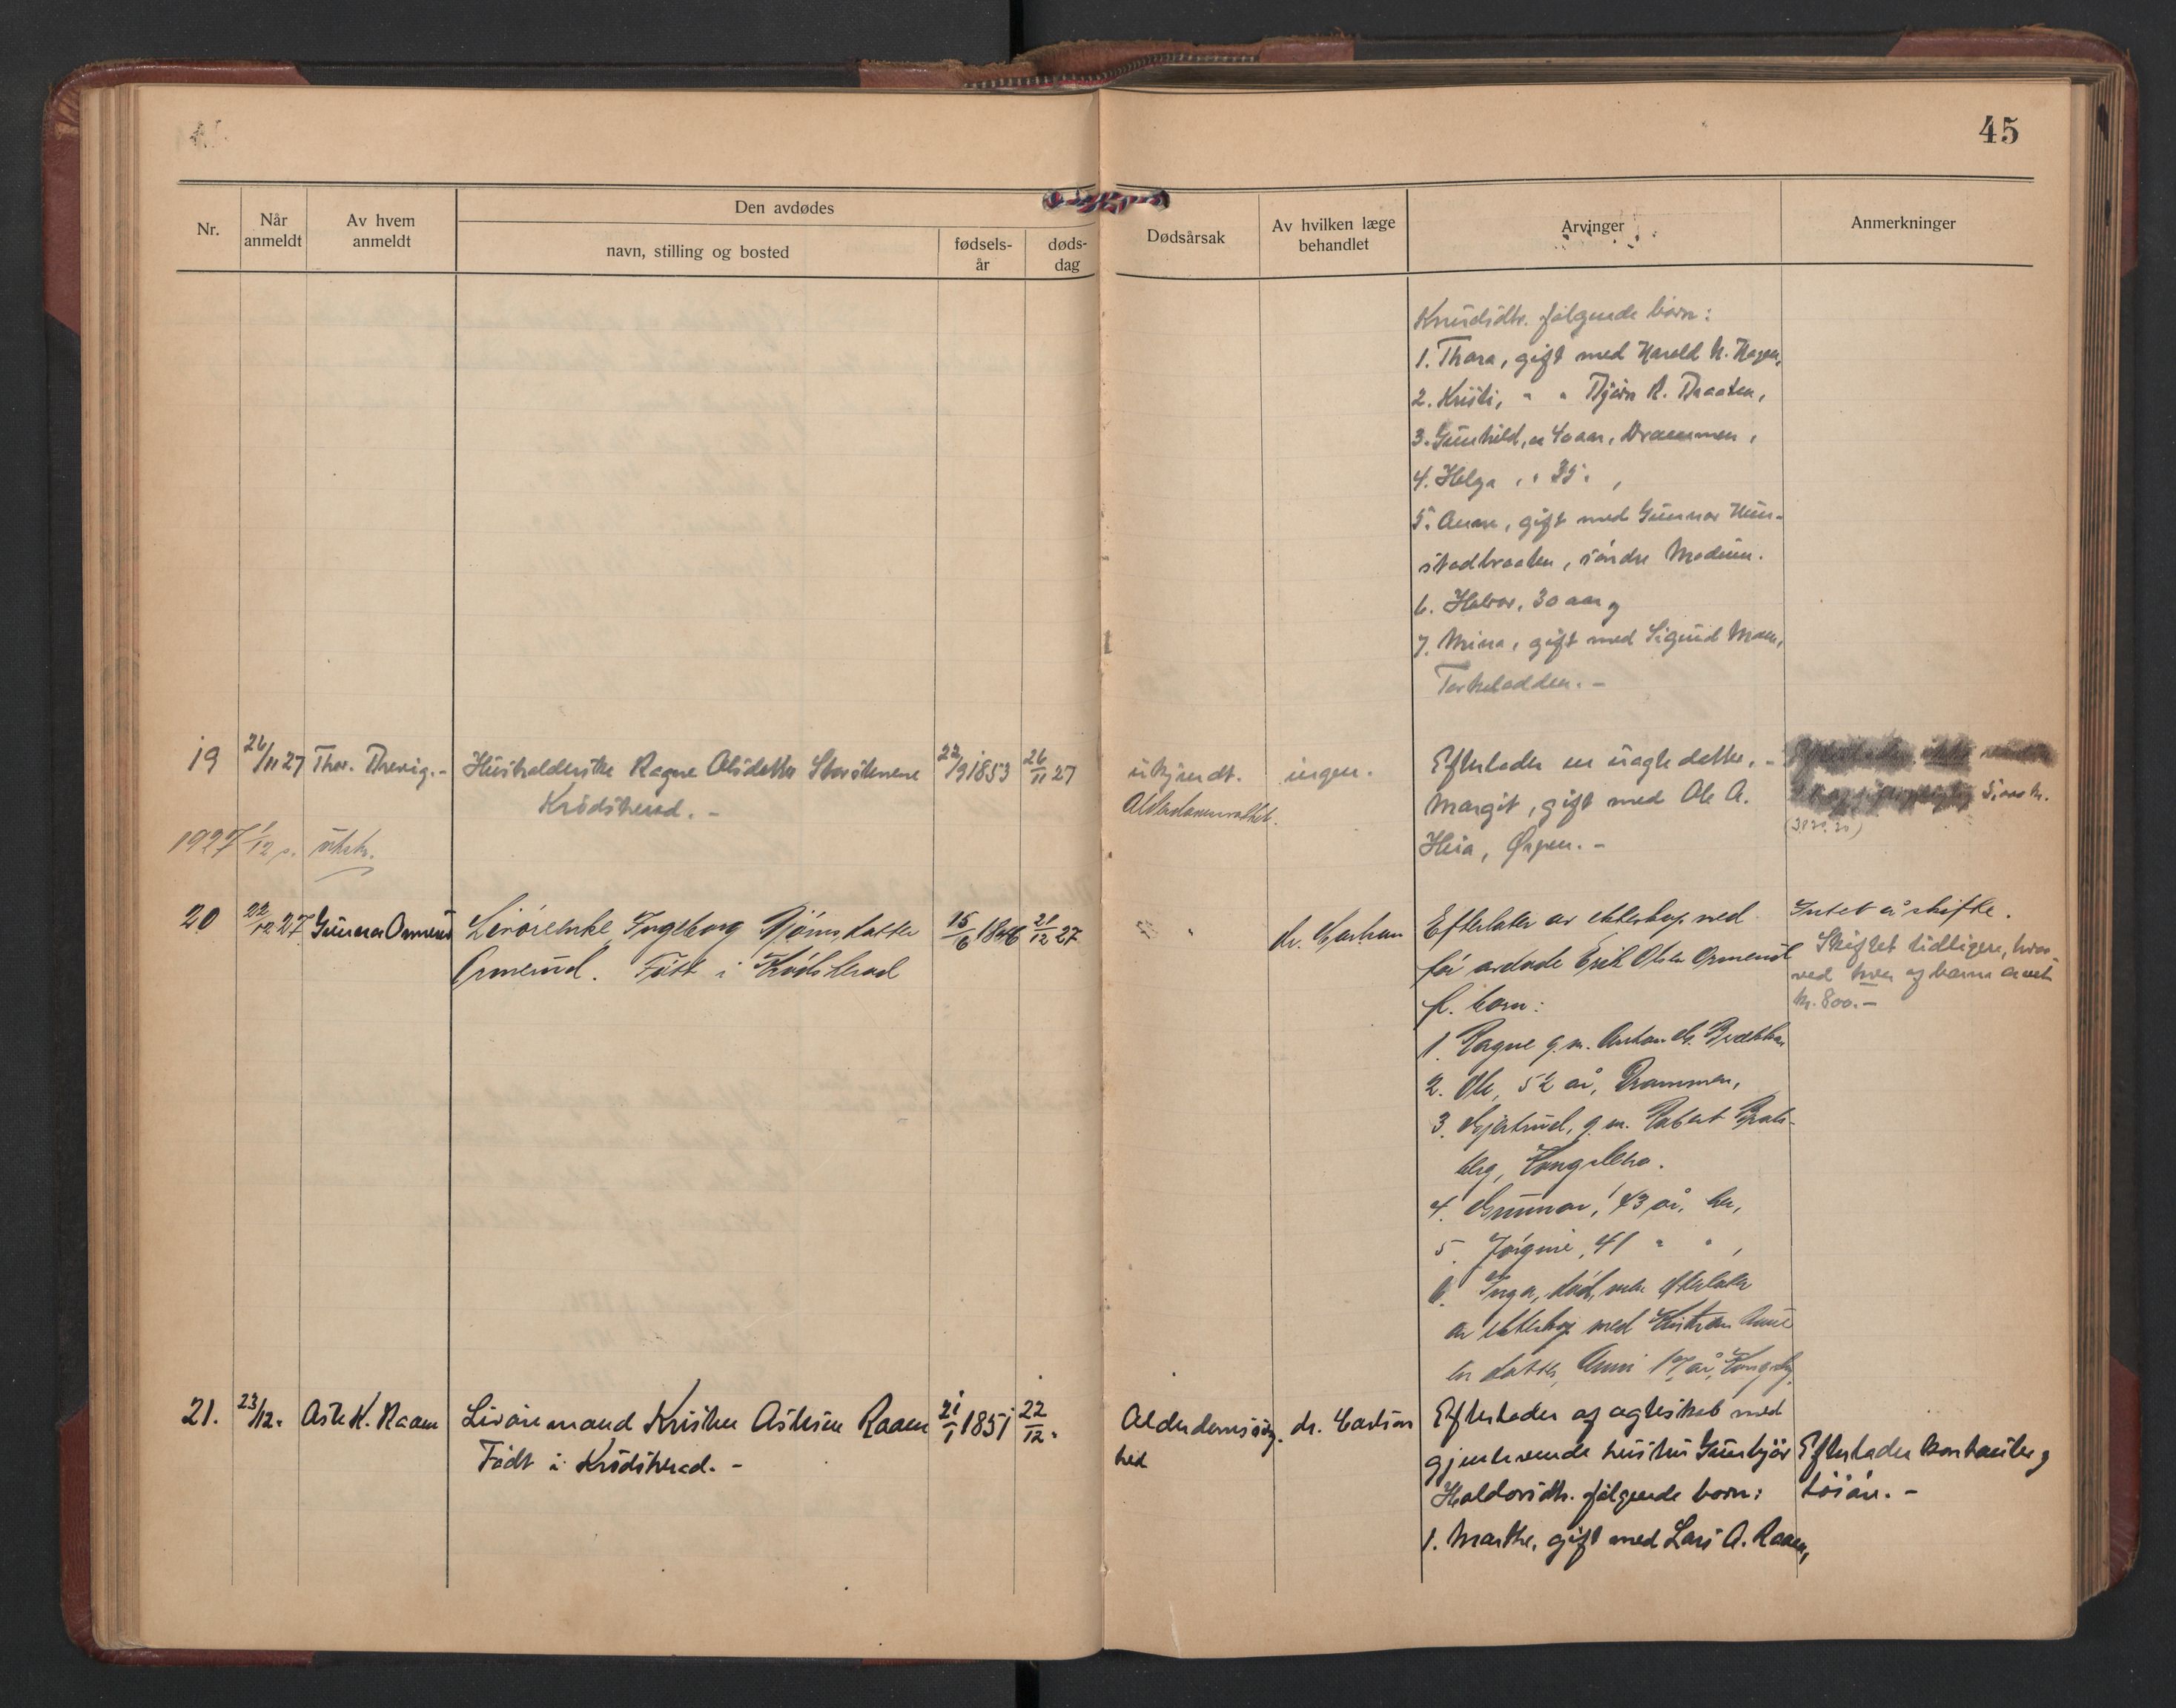 45
Nr.
Når anmeldt
Av hvem anmeldt
Den avdødes
navn, stilling og bosted
fødsels-år
døds-dag
Dødsårsak
Av hvilken læge behandlet
Arvinger
Anmerkninger
Knudsdtr. følgende børn:
1. Thora, gift med Harald N. Hagen,
2. Kristi, " " Bjørn R. Braaten,
3. Gunhild, 40 aar, Drammen,
4. Helga, " 35 " ,
5. Anne, gift med Gunnar
stadbraaten, søndre Modum.
6. Halvor, 30 aar og
7. Mina, gift med Sigurd Moen,
19 26/11 27 Thor. Brevig.- Husholderske Ragne Olsdatter Krødsherad.- 22/9 1853 26/11 27
ukjendt. ingen.
Efterlader en uægte datter, -
Margit, gift med Ole A.
Heia, -
1927 1/12 utskr.
20 22/12 27 Gunnar Ormerud Livøreenke Ingeborg Bjørnsdatter
Ormerud. Født i Krødsherad
15/6 1846 21/12 27
" dr. Carlson
Efterlater av ekteskap med
før avdøde Erik Olsen Ormerud
fl. born:
1. Ragne g.m. Anton
2. Ole, 52 år, Drammen,
3. Gjertrud, g.m. Robert
berg,
4. Gunnar, 43 år, her,
5. Jørgine, 41 " " ,
6. Inga, død, men efterlater
av ekteskap med Kristian
en datter, 17 år,
Intet å skifte.
Skiftet tidligere,
ved hver av barna arvet
kr. 800.-
21. 23/12. Asle K. Raaen Livøremand Kristen Aslesen Raaen
Født i Krødsherad. -
21/1 1851 22/12.
Alderdomssvag-
hed
dr. Carlson
Efterlader af ægteskab med
gjenlevende hustru Gunbjør
Haldorsdtr. følgende børn:
1. Marthe, gift med Lars A. Raaen,
Efterlader kontanter og
løsøre. -